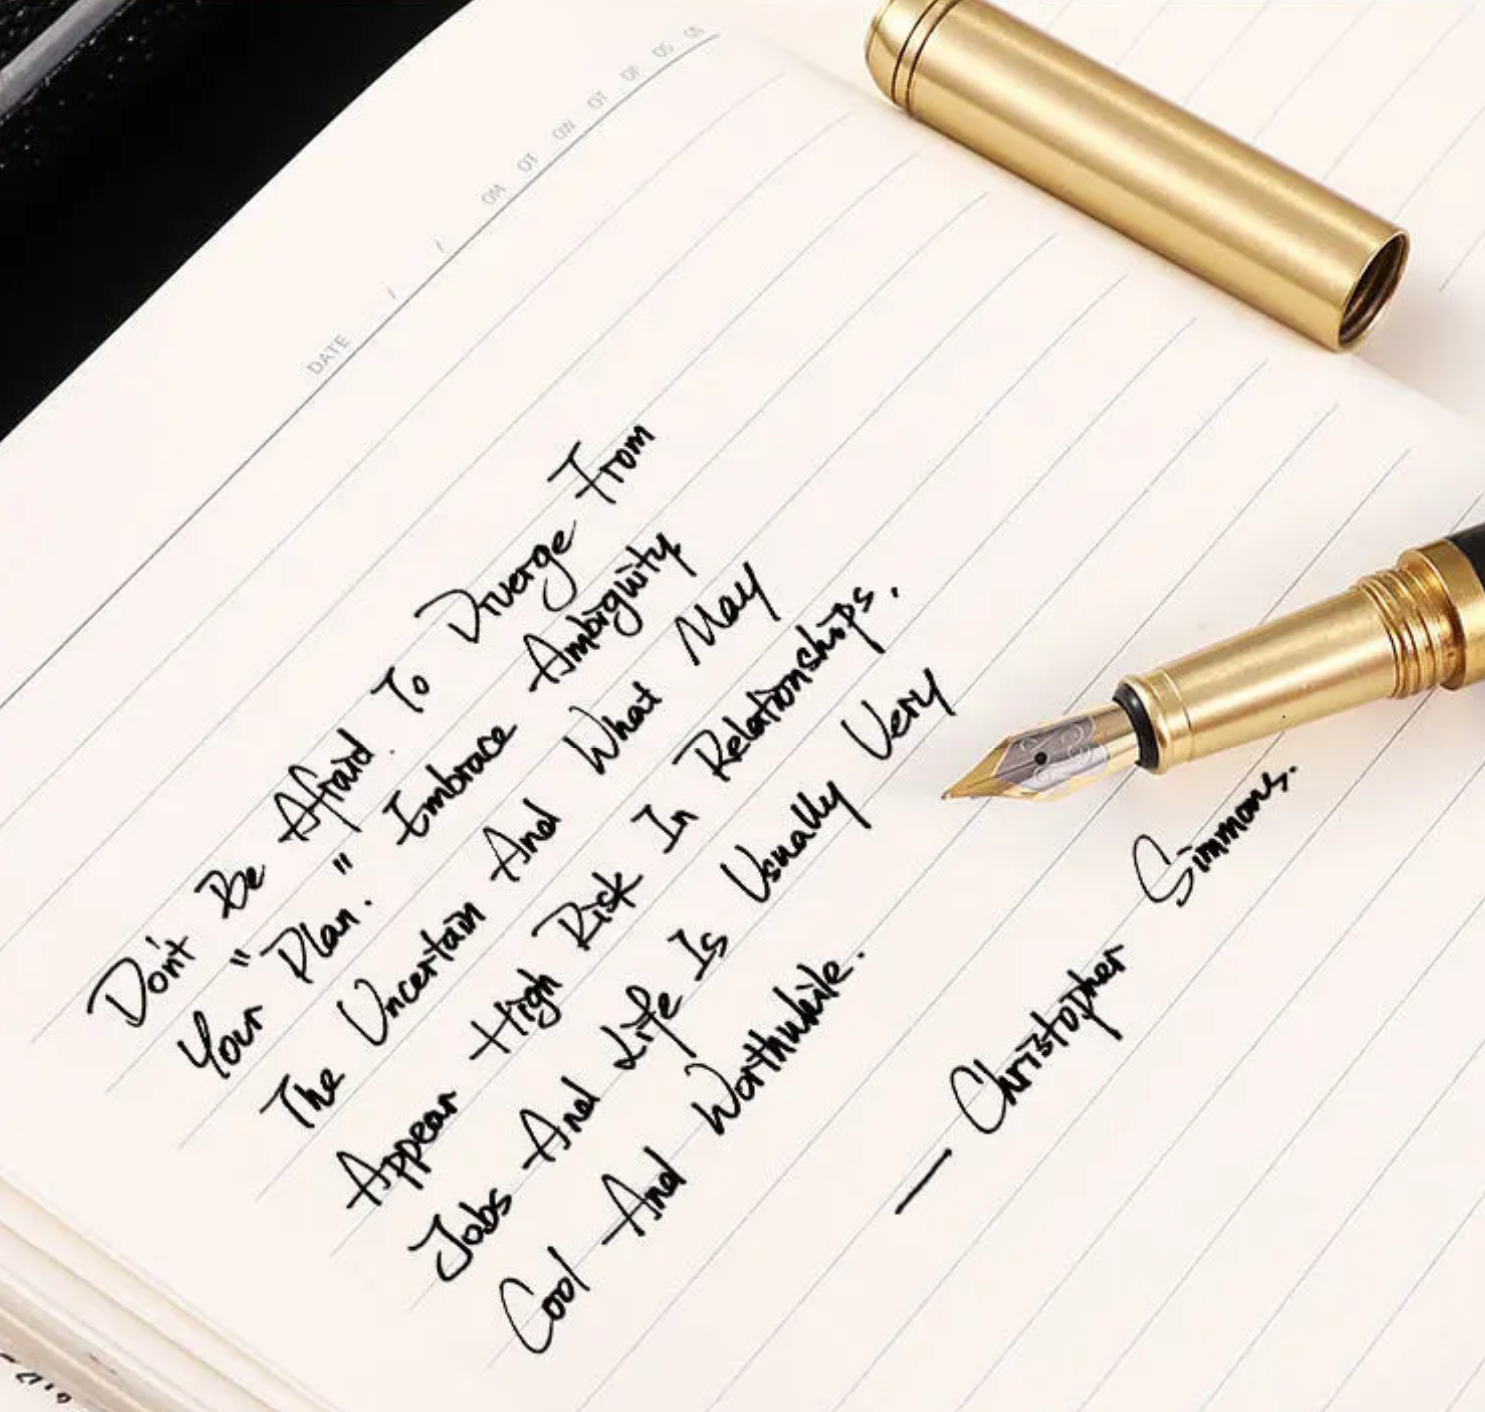 OM OT OW OT OF OS OS
DATE / /
Don't Be Afraid To Diverge From
Your "Plan." Embrace Ambiguity
The Uncertain And What May
Appear High Risk In Relationships.
Jobs And Life Is Usually Very
Cool And Worthwhile.
— Christopher Simmons.